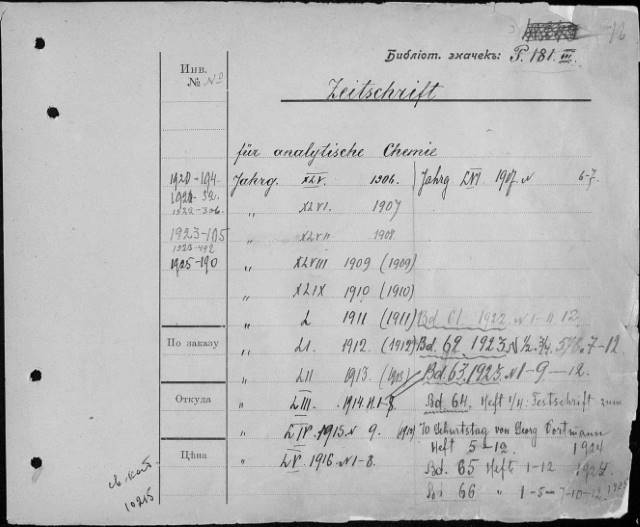 Библiот. значекъ: P. 181. III.
Инв. № №
Zeitschrift
für analytische Chemie
1920-194. Jahrg. XLV. 1906. Jahrg LVI 1917 N 6-7.
1922-306 „ XLVI. 1907
1923-105 „ XLVII 1908
1923-492
1925-190 „ XLVIII 1909 (1909)
„ XLIX 1910 (1910)
„ L 1911 (1911) Bd. 61. 1922. N 1-11 12.
По заказу „ LI. 1912. (1912) Bd. 62. 1923. N 1/2. 3/4. 5/6. 7-12
„ LII 1913. (1913) Bd. 63. 1923. N 1-9-12.
Откуда „ LIII. 1914 H. 1-8 Bd. 64. Heft 1/4: Festschrift zum
„ LIV. 1915 N 9. 70 Geburtstag von Georg Vortmann
Heft 5-12 1924
Цѣна „ LV. 1916 N 1-8. Bd. 65 Heft 1-12 1924
Bd. 66 „ 1-5 7-10-12. 1925
см. кат.
10215